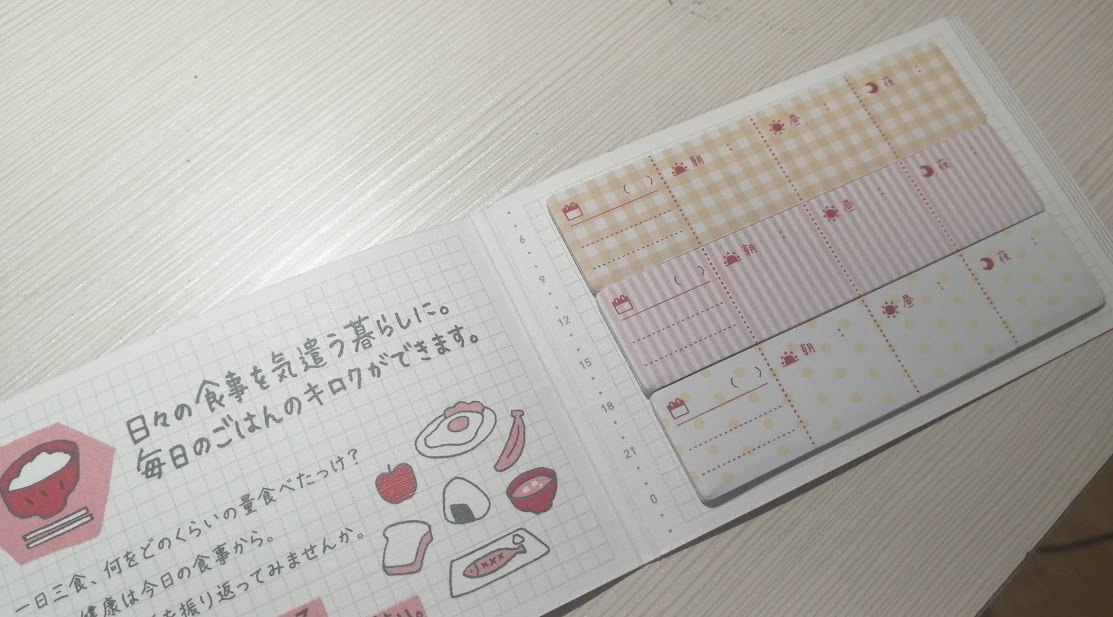 日々の食事を気遣う暮らしに。
毎日のごはんのキロクができます。
一日三食、何をどのくらいの量食べたっけ?
健康は今日の食事から。
を振り返ってみませんか。
6
9
12
15
18
21
0
( ) 朝 : 昼 : 夜 :
( ) 朝 : 昼 : 夜 :
( ) 朝 : 昼 : 夜 :